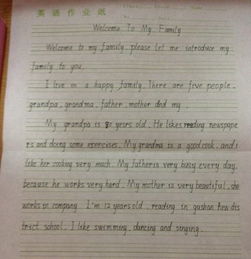 英语作业纸
Welcome To My Family
Welcome to my family. please let me introduce my
family to you.
I live in a happy family. There are five people.
grandpa, grandma, father, mother and my.
My grandpa is years old. He likes reading newspape
rs and doing some exercises. My grandma is a good cook. and I
like her cooking very much. My father is very busy every day.
because he works very hard. My mother is very beautiful. she
works in company. I'm 12 years old. reading in gushan how dis
trict school. I like swimming, dancing and singing.